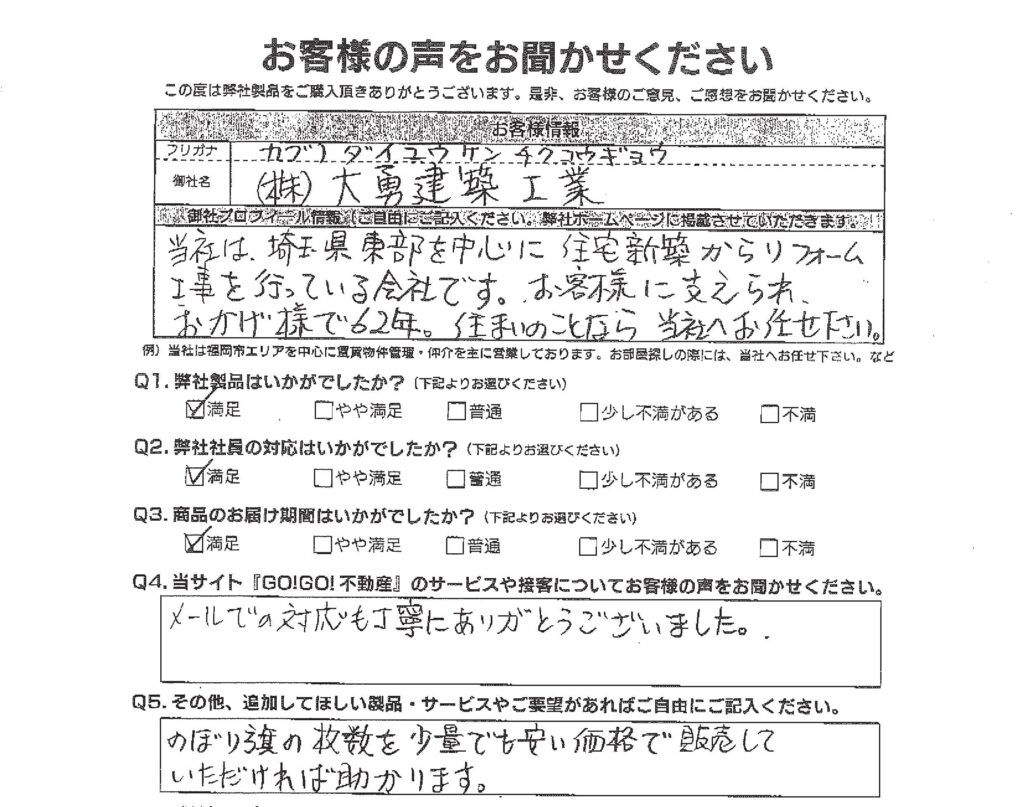 お客様の声をお聞かせください
この度は弊社製品をご購入頂きありがとうございます。是非、お客様のご意見、ご感想をお聞かせください。
お客様情報
フリガナ カブ)ダイユウケンチクコウギョウ
御社名 (株)大勇建築工業
御社プロフィール情報(ご自由にご記入ください。弊社ホームページに掲載させていただきます。)
当社は、埼玉県東部を中心に住宅新築からリフォーム
工事を行っている会社です。お客様に支えられ、
おかげ様で62年。住まいのことなら当社へお任せ下さい。
例)当社は福岡市エリアを中心に賃貸物件管理・仲介を主に営業しております。お部屋探しの際には、当社へお任せ下さい。など
Q1.弊社製品はいかがでしたか?(下記よりお選びください)
☑満足 □やや満足 □普通 □少し不満がある □不満
Q2.弊社社員の対応はいかがでしたか?(下記よりお選びください)
☑満足 □やや満足 □普通 □少し不満がある □不満
Q3.商品のお届け期間はいかがでしたか?(下記よりお選びください)
☑満足 □やや満足 □普通 □少し不満がある □不満
Q4.当サイト『GO!GO!不動産』のサービスや接客についてお客様の声をお聞かせください。
メールでの対応も丁寧にありがとうございました。
Q5.その他、追加してほしい製品・サービスやご要望があればご自由にご記入ください。
のぼり旗の枚数を少量でも安い価格で販売して
いただければ助かります。